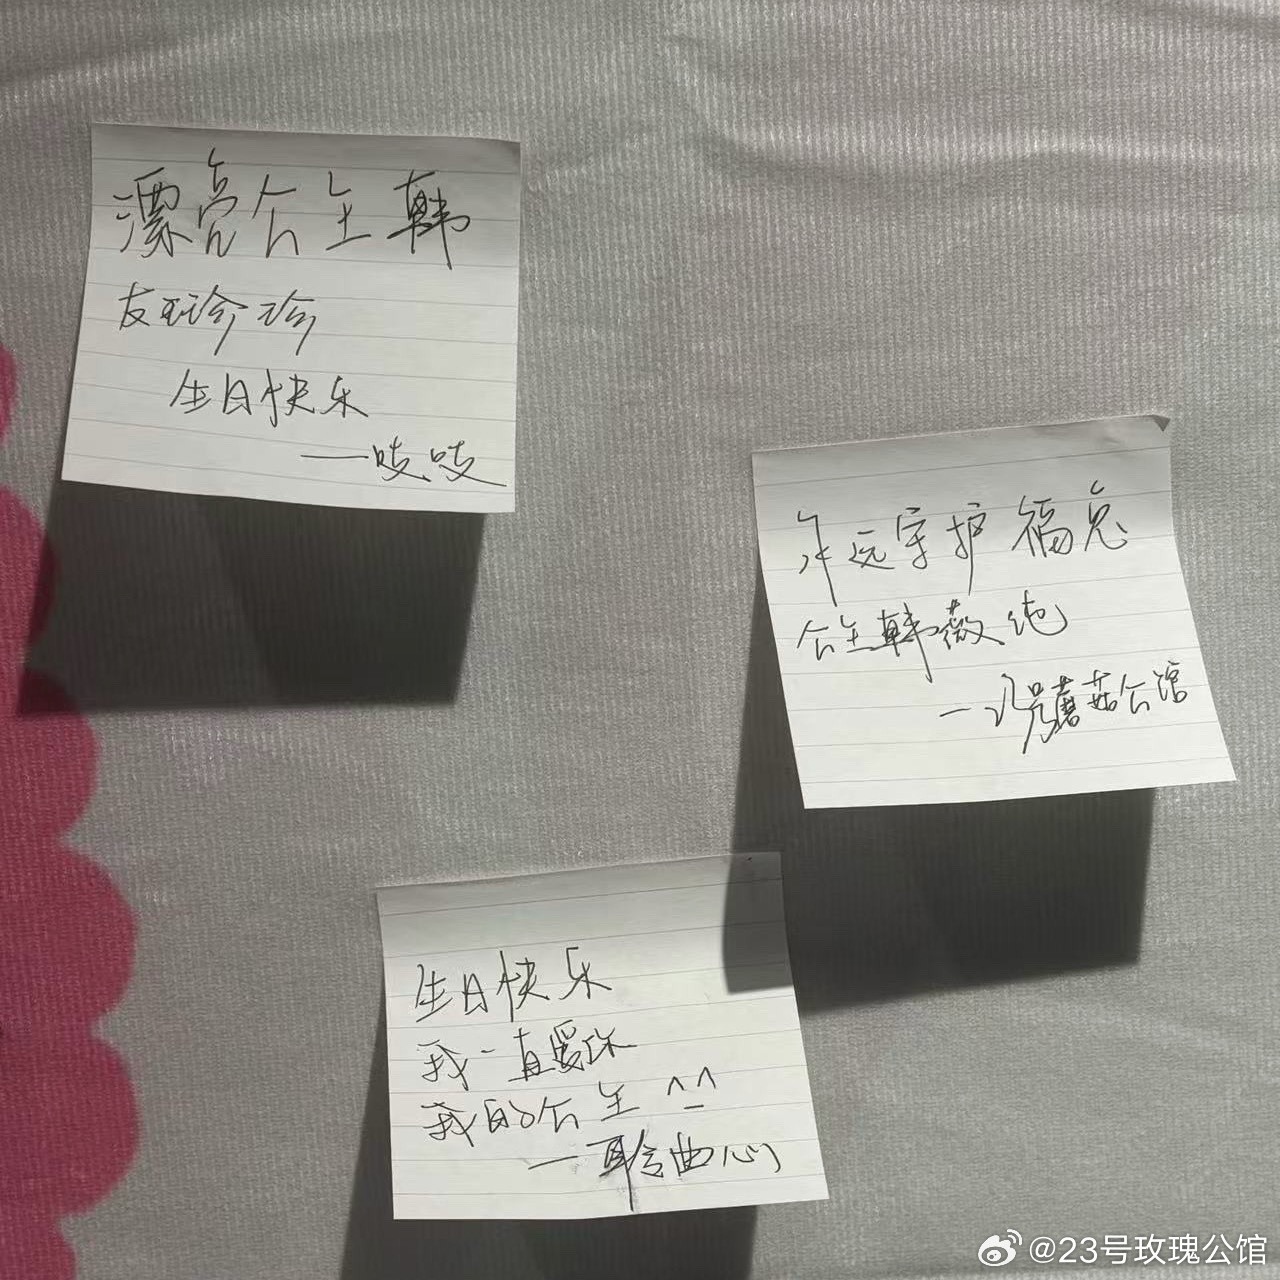 漂亮公主韩
友珍珍
生日快乐
——吱吱
永远守护福兔
公主韩薇纯
号蘑菇公馆
生日快乐
我一直爱你
我的公主^_^
—聆曲心
@23号玫瑰公馆